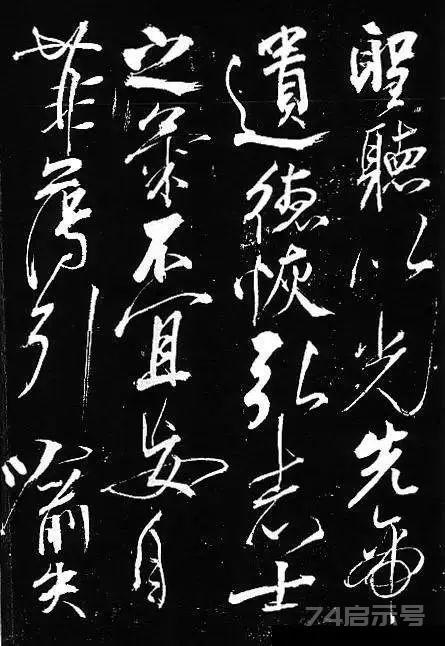 聖聽以光先帝
遺德恢弘志士
之氣不宜妄自
菲薄引喻失
74启示号